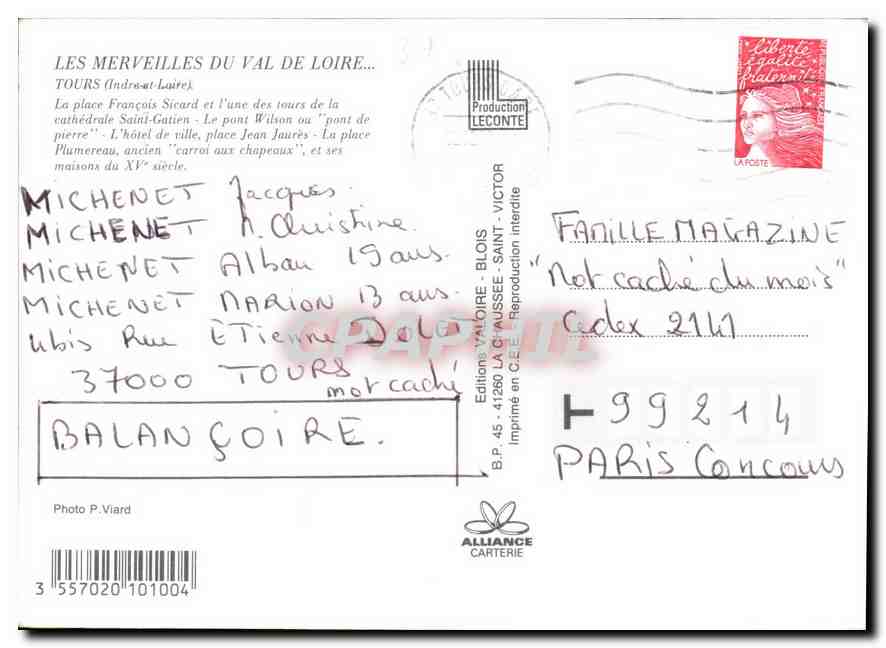 LES MERVEILLES DU VAL DE LOIRE...
TOURS (Indre-et-Loire).
La place François Sicard et l'une des tours de la
cathédrale Saint-Gatien - Le pont Wilson ou "pont de
pierre" - L'hôtel de ville, place Jean Jaurès - La place
Plumereau, ancien "carroi aux chapeaux", et ses
maisons du XVe siècle.
MICHENET Jacques.
MICHENET M. Christine.
MICHENET Alban 19 ans.
MICHENET MARION 13 ans.
4bis Rue ETienne DOLET
37000 TOURS
mot caché
BALANÇOIRE.
Photo P.Viard
3 557020 101004
Production
LECONTE
Editions VALOIRE - BLOIS
B.P. 45 - 41260 LA CHAUSSEE - SAINT - VICTOR
Imprimé en C.E.E. Reproduction interdite
ALLIANCE
CARTERIE
liberté
égalité
fraternité
REPUBLIQUE FRANÇAISE
LA POSTE
FAMILLE MAGAZINE
"Mot caché du mois"
Cedex 2141
99214
PARIS Concours
CPAPHIL